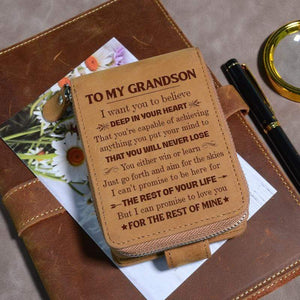 TO MY GRANDSON
I want you to believe
DEEP IN YOUR HEART
That you're capable of achieving
anything you put your mind to
THAT YOU WILL NEVER LOSE
You either win or learn
Just go forth and aim for the skies
I can't promise to be here for
THE REST OF YOUR LIFE
But I can promise to love you
FOR THE REST OF MINE